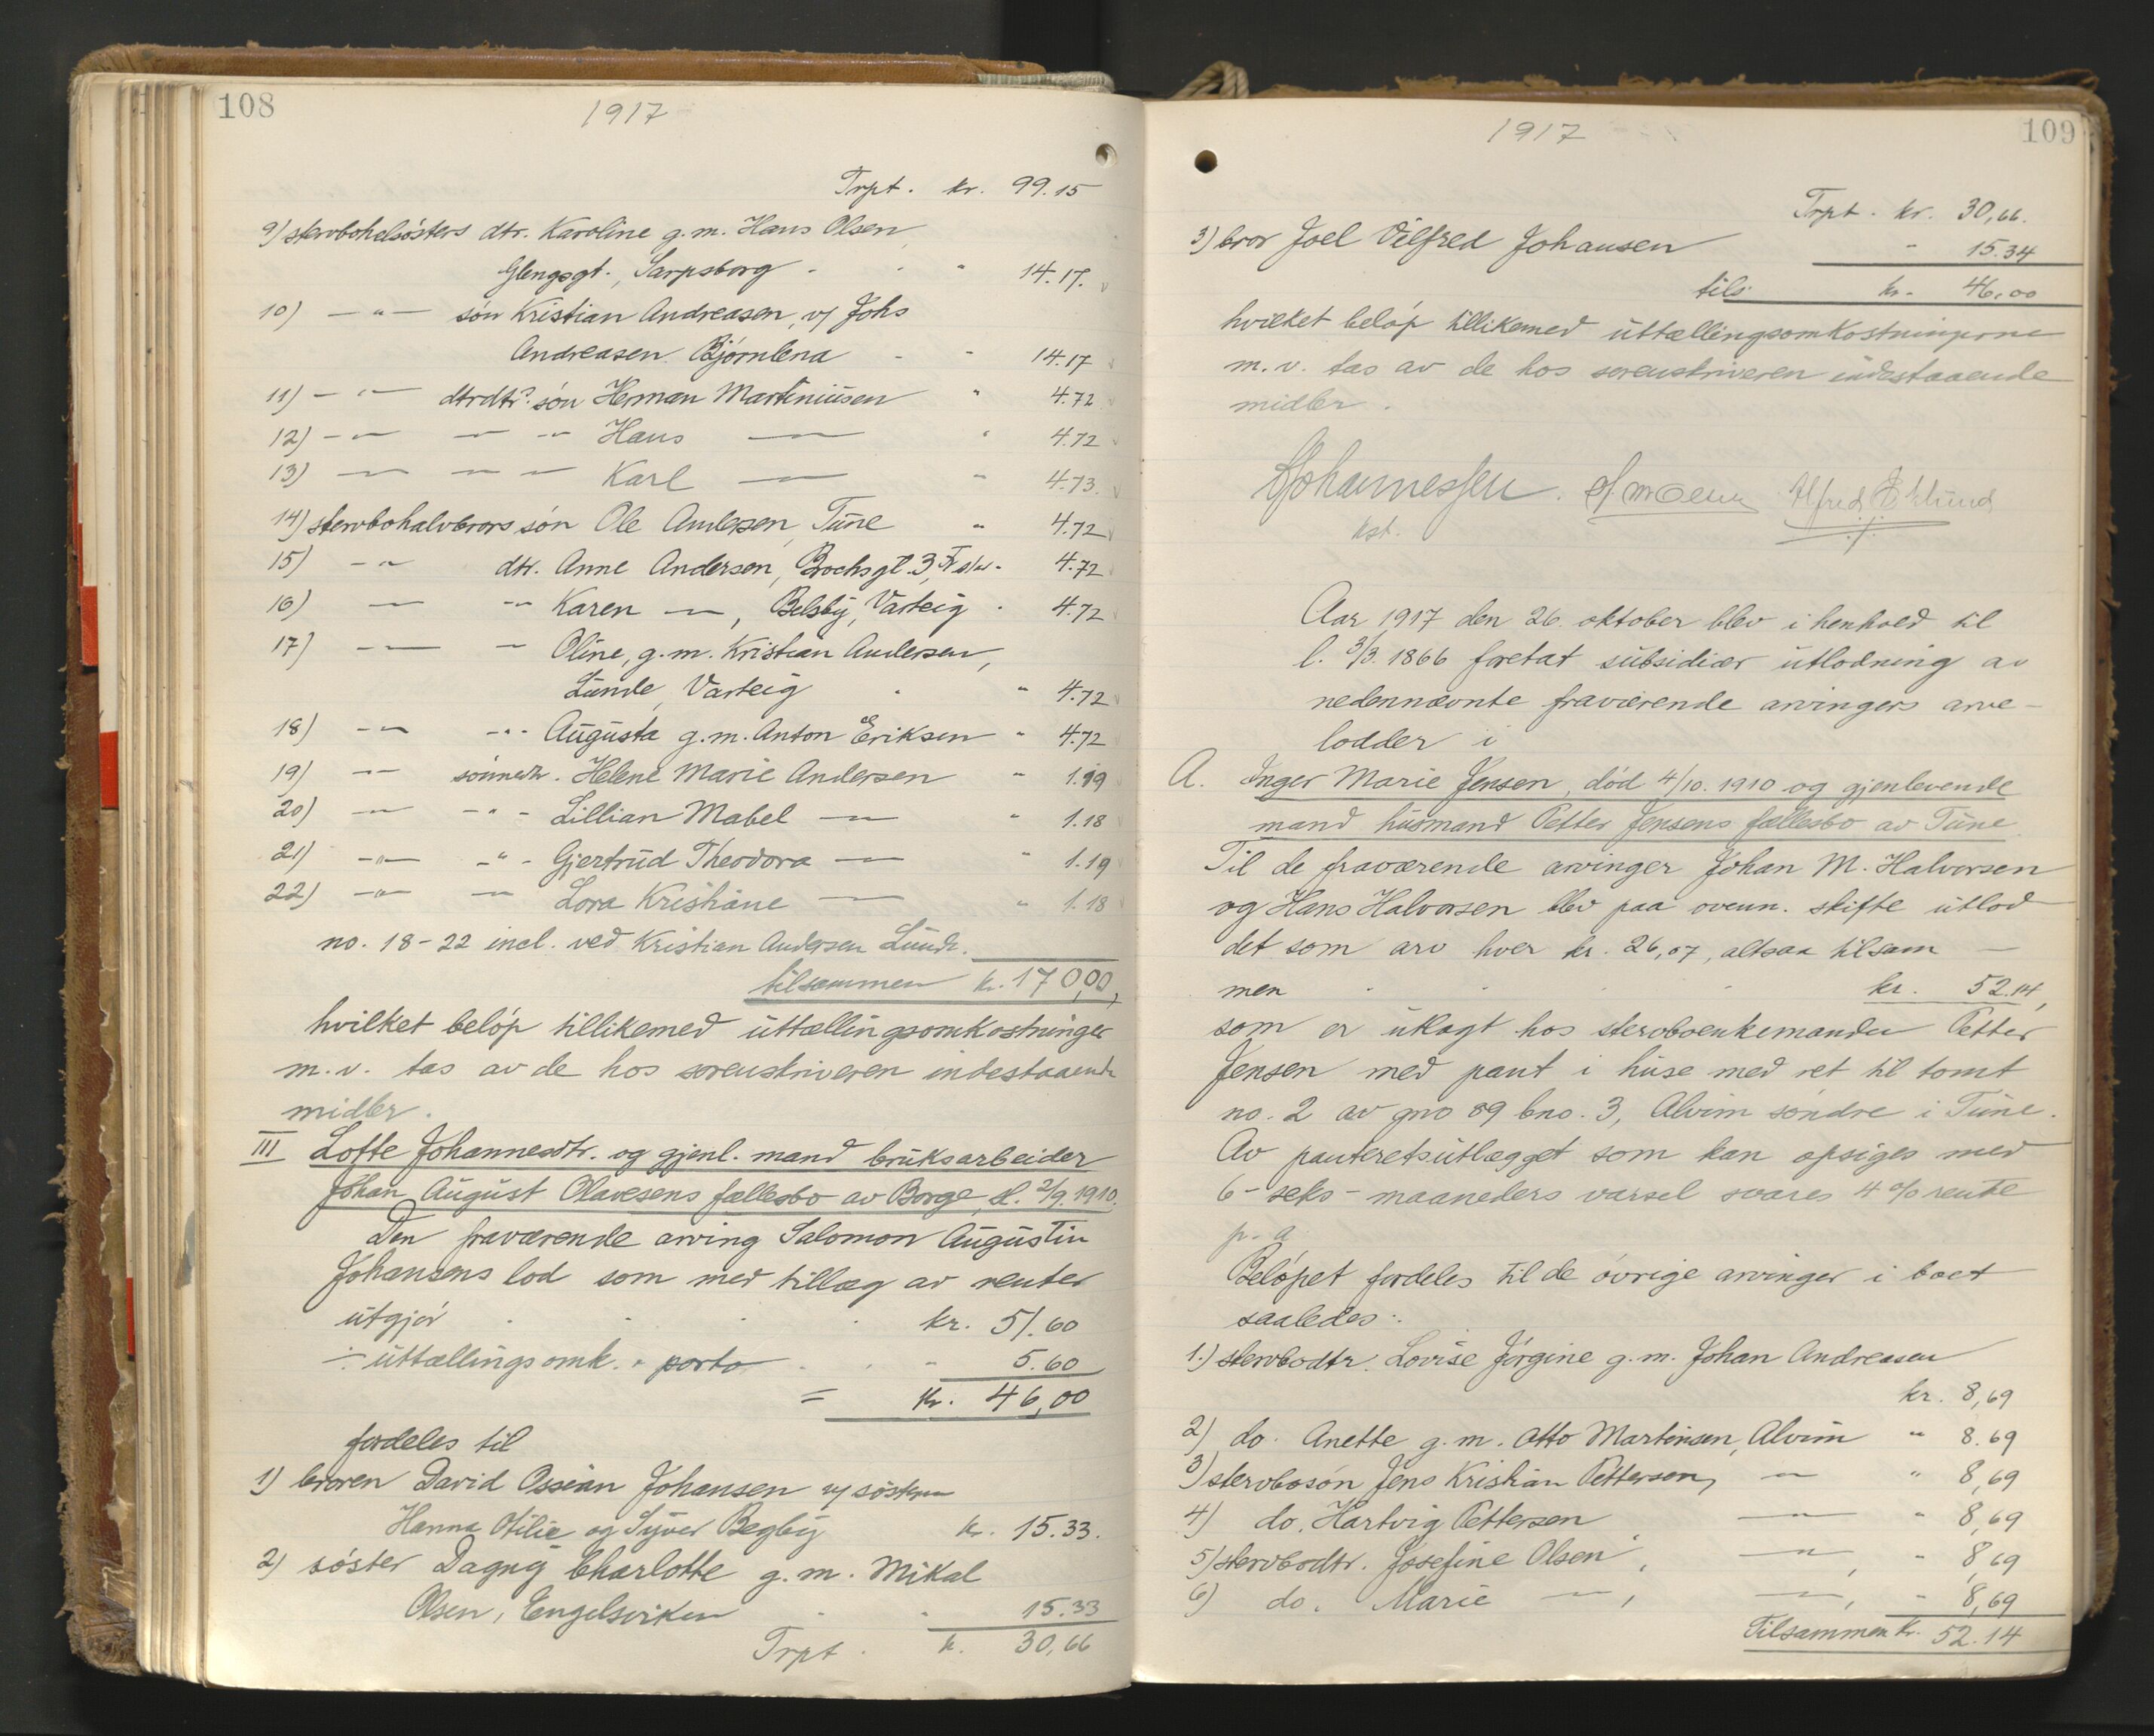 108
1917
Trpt. kr. 99.15
9) stervbohelsösters dtr. Karoline g.m. Hans Olsen,
Glengsgt., Sarpsborg - - " 14.17.
10) — " — sön Kristian Andreasen, v/ Johs
Andreasen Björnlena - - 14.17
11) — " — dtrdtrs sön Herman Martiniüsen " 4.72
12) — " — — " — Hans — " — " 4.72
13) — " — — " — Karl — " — " 4.73.
14) stervbohalvbrors sön Ole Andersen, Tüne " 4.72
15) — " dtr. Anne Andersen, Brochsgt. 3, Fr.st. - 4.72
16) — " — — " Karen — " —, Belsby, Varteig . 4.72
17) — " — — " Oline, g.m. Kristian Andersen,
Lünde, Varteig - " 4.72
18) — " — - " - Augüsta g.m. Anton Eriksen " 4.72
19) — " — sönnedtr. Helene Marie Andersen " 1.19
20) — " — - " - Lillian Mabel — " — " 1.18
21) — " — - " - Gjertrüd Theodora — " — " 1.19
22) — " — — " — Lora Kristiane — " — " 1.18
no. 18-22 incl. ved Kristian Andersen Lünde.
tilsammen kr. 170,00,
hvilket belöp tillikemed üttællingsomkostninger
m.v. tas av de hos sorenskriveren indestaaende
midler.
III Lotte Johannesdtr. og gjenl. mand brüksarbeider
Johan Aügüst Olavesens fællesbo av Borge, sl. 2/9. 1910.
Den fraværende arving Salomon Aügüstin
Johansens lod som med tillæg av renter
ütgjör . . . . kr. 51.60
÷ üttællingsomk. + porto . . " 5.60
= kr. 46,00
fordeles til
1) broren David Ossian Johansen v/ söstern
Hanna Otilie og Syver Begby kr. 15.33.
2) söster Dagny Charlotte g.m. Mikal
Olsen, Engelsviken - " 15.33
Trpt. k. 30,66
109
1917
Trpt. kr. 30,66.
3) bror Joel Vilfred Johansen " 15.34
tils. kr. 46,00
hvilket belöp tillikemed üttællingsomkostningerne
m.v. tas av de hos sorenskriveren indestaaende
midler.
Johannessen. Alfred Eklund
kst.
Aar 1917 den 26. oktober blev i henhold til
l. 3/3. 1866 foretat sübsidiær ütlodning av
nedennævnte fraværende arvingers arve-
lodder i
A. Inger Marie Jensen, död 4/10. 1910 og gjenlevende
mand hüsmand Petter Jensens fællesbo av Tüne.
Til de fraværende arvinger Johan M. Halvorsen
og Hans Halvorsen blev paa ovenn. skifte ütlod-
det som arv hver kr. 26,07, altsaa tilsam —
men . . . . kr. 52.14,
som er ütlagt hos stervboenkemanden Petter
Jensen med pant i hüse med ret til tomt
no. 2 av gno 89 bno. 3, Alvim söndre i Tüne.
Av panteretsütlægget som kan opsiges med
6 - seks - maaneders varsel svares 4 % rente
p. a.
Belöpet fordeles til de övrige arvinger i boet
saaledes:
1.) stervbodtr. Lovise Jörgine g.m. Johan Andreasen
kr. 8,69
2) do. Anette g.m. Otto Martinsen, Alvim " 8.69
3) stervbosön Jens Kristian Pettersen, — " — " 8,69
4) do. Hartvig Pettersen — " — " 8,69
5) stervbodtr. Josefine Olsen, — " —, " 8,69
6) do. Marie — " —, — " —, " 8,69
Tilsammen kr. 52.14